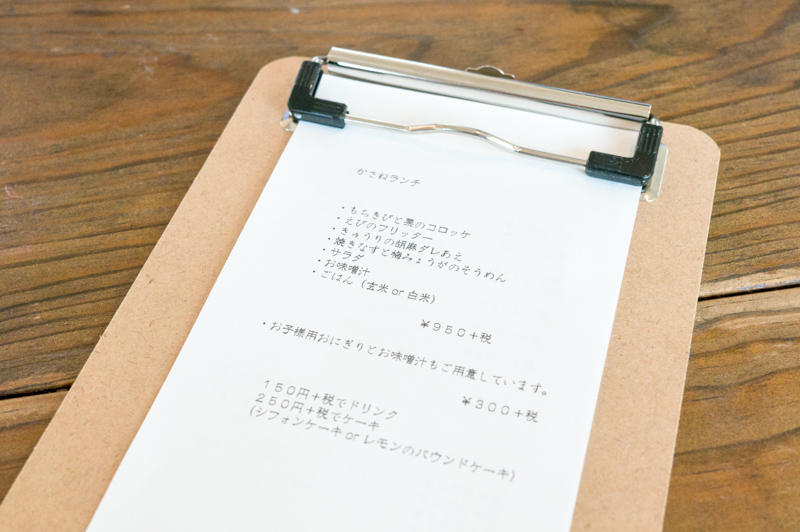 かさねランチ
・もちきびと栗のコロッケ
・えびのフリッター
・きゅうりの胡麻ダレあえ
・焼きなすと梅みょうがのそうめん
・サラダ
・お味噌汁
・ごはん（玄米 or 白米）
￥９５０＋税
・お子様用おにぎりとお味噌汁もご用意しています。
￥３００＋税
１５０円＋税でドリンク
２５０円＋税でケーキ
（シフォンケーキ or レモンのパウンドケーキ）